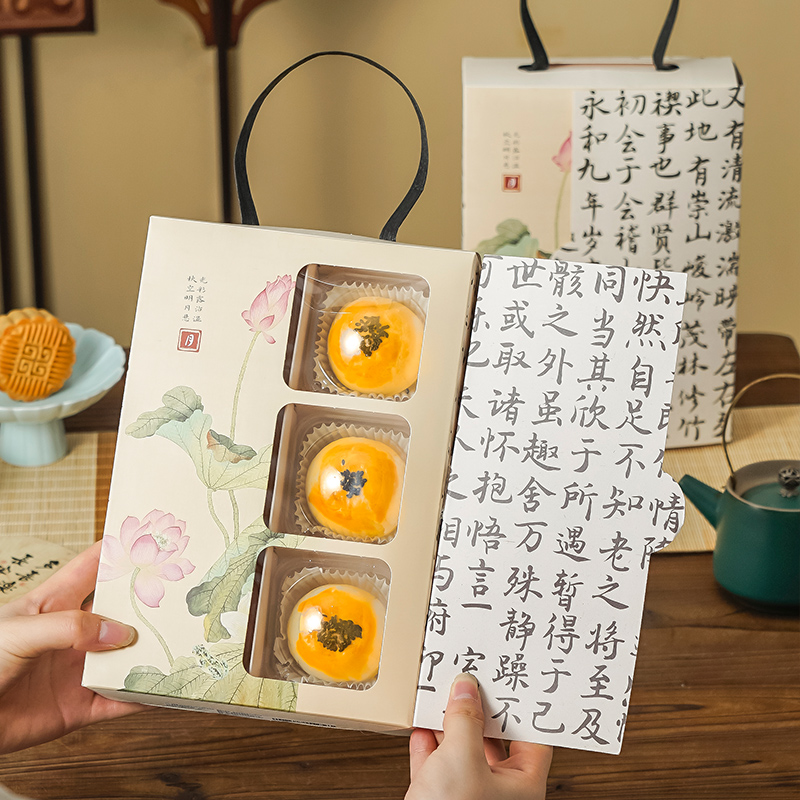 秋空明月悬
光彩露沾湿
月
人之相与
世或取诸怀抱悟言一室
骸之外虽趣舍万殊静躁不
同当其欣于所遇暂得于己
快然自足不知老之将至及
情随
永和九年岁
初会于会稽
禊事也群贤
此地有崇山峻岭茂林修竹
又有清流激湍映带左右
月